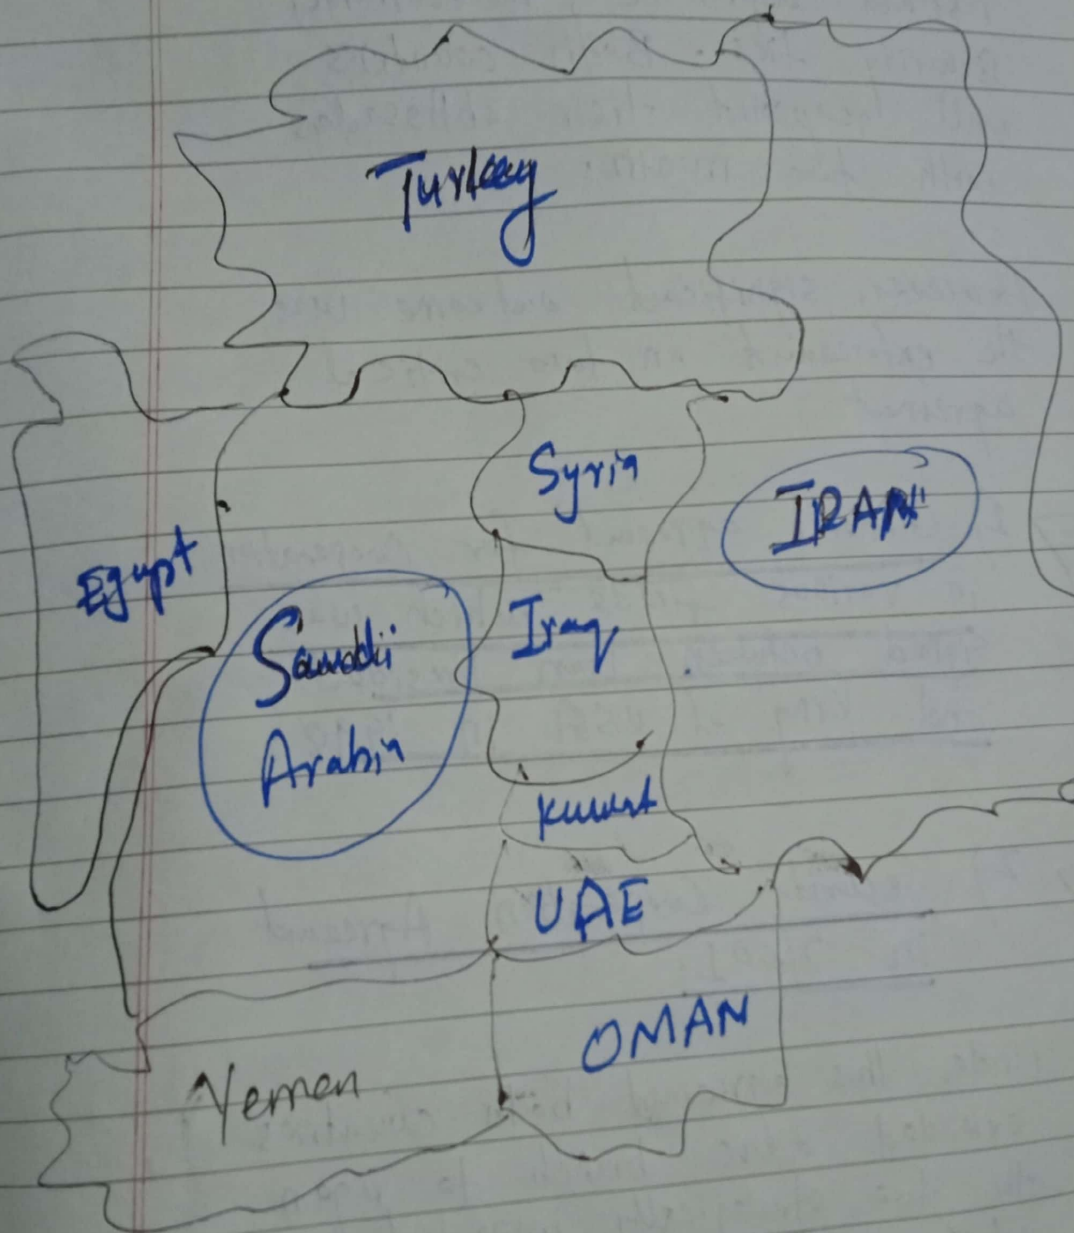 Turkey
Syria
IRAN
Egypt
Iraq
Saudii
Arabia
Kuwat
UAE
OMAN
Yemen